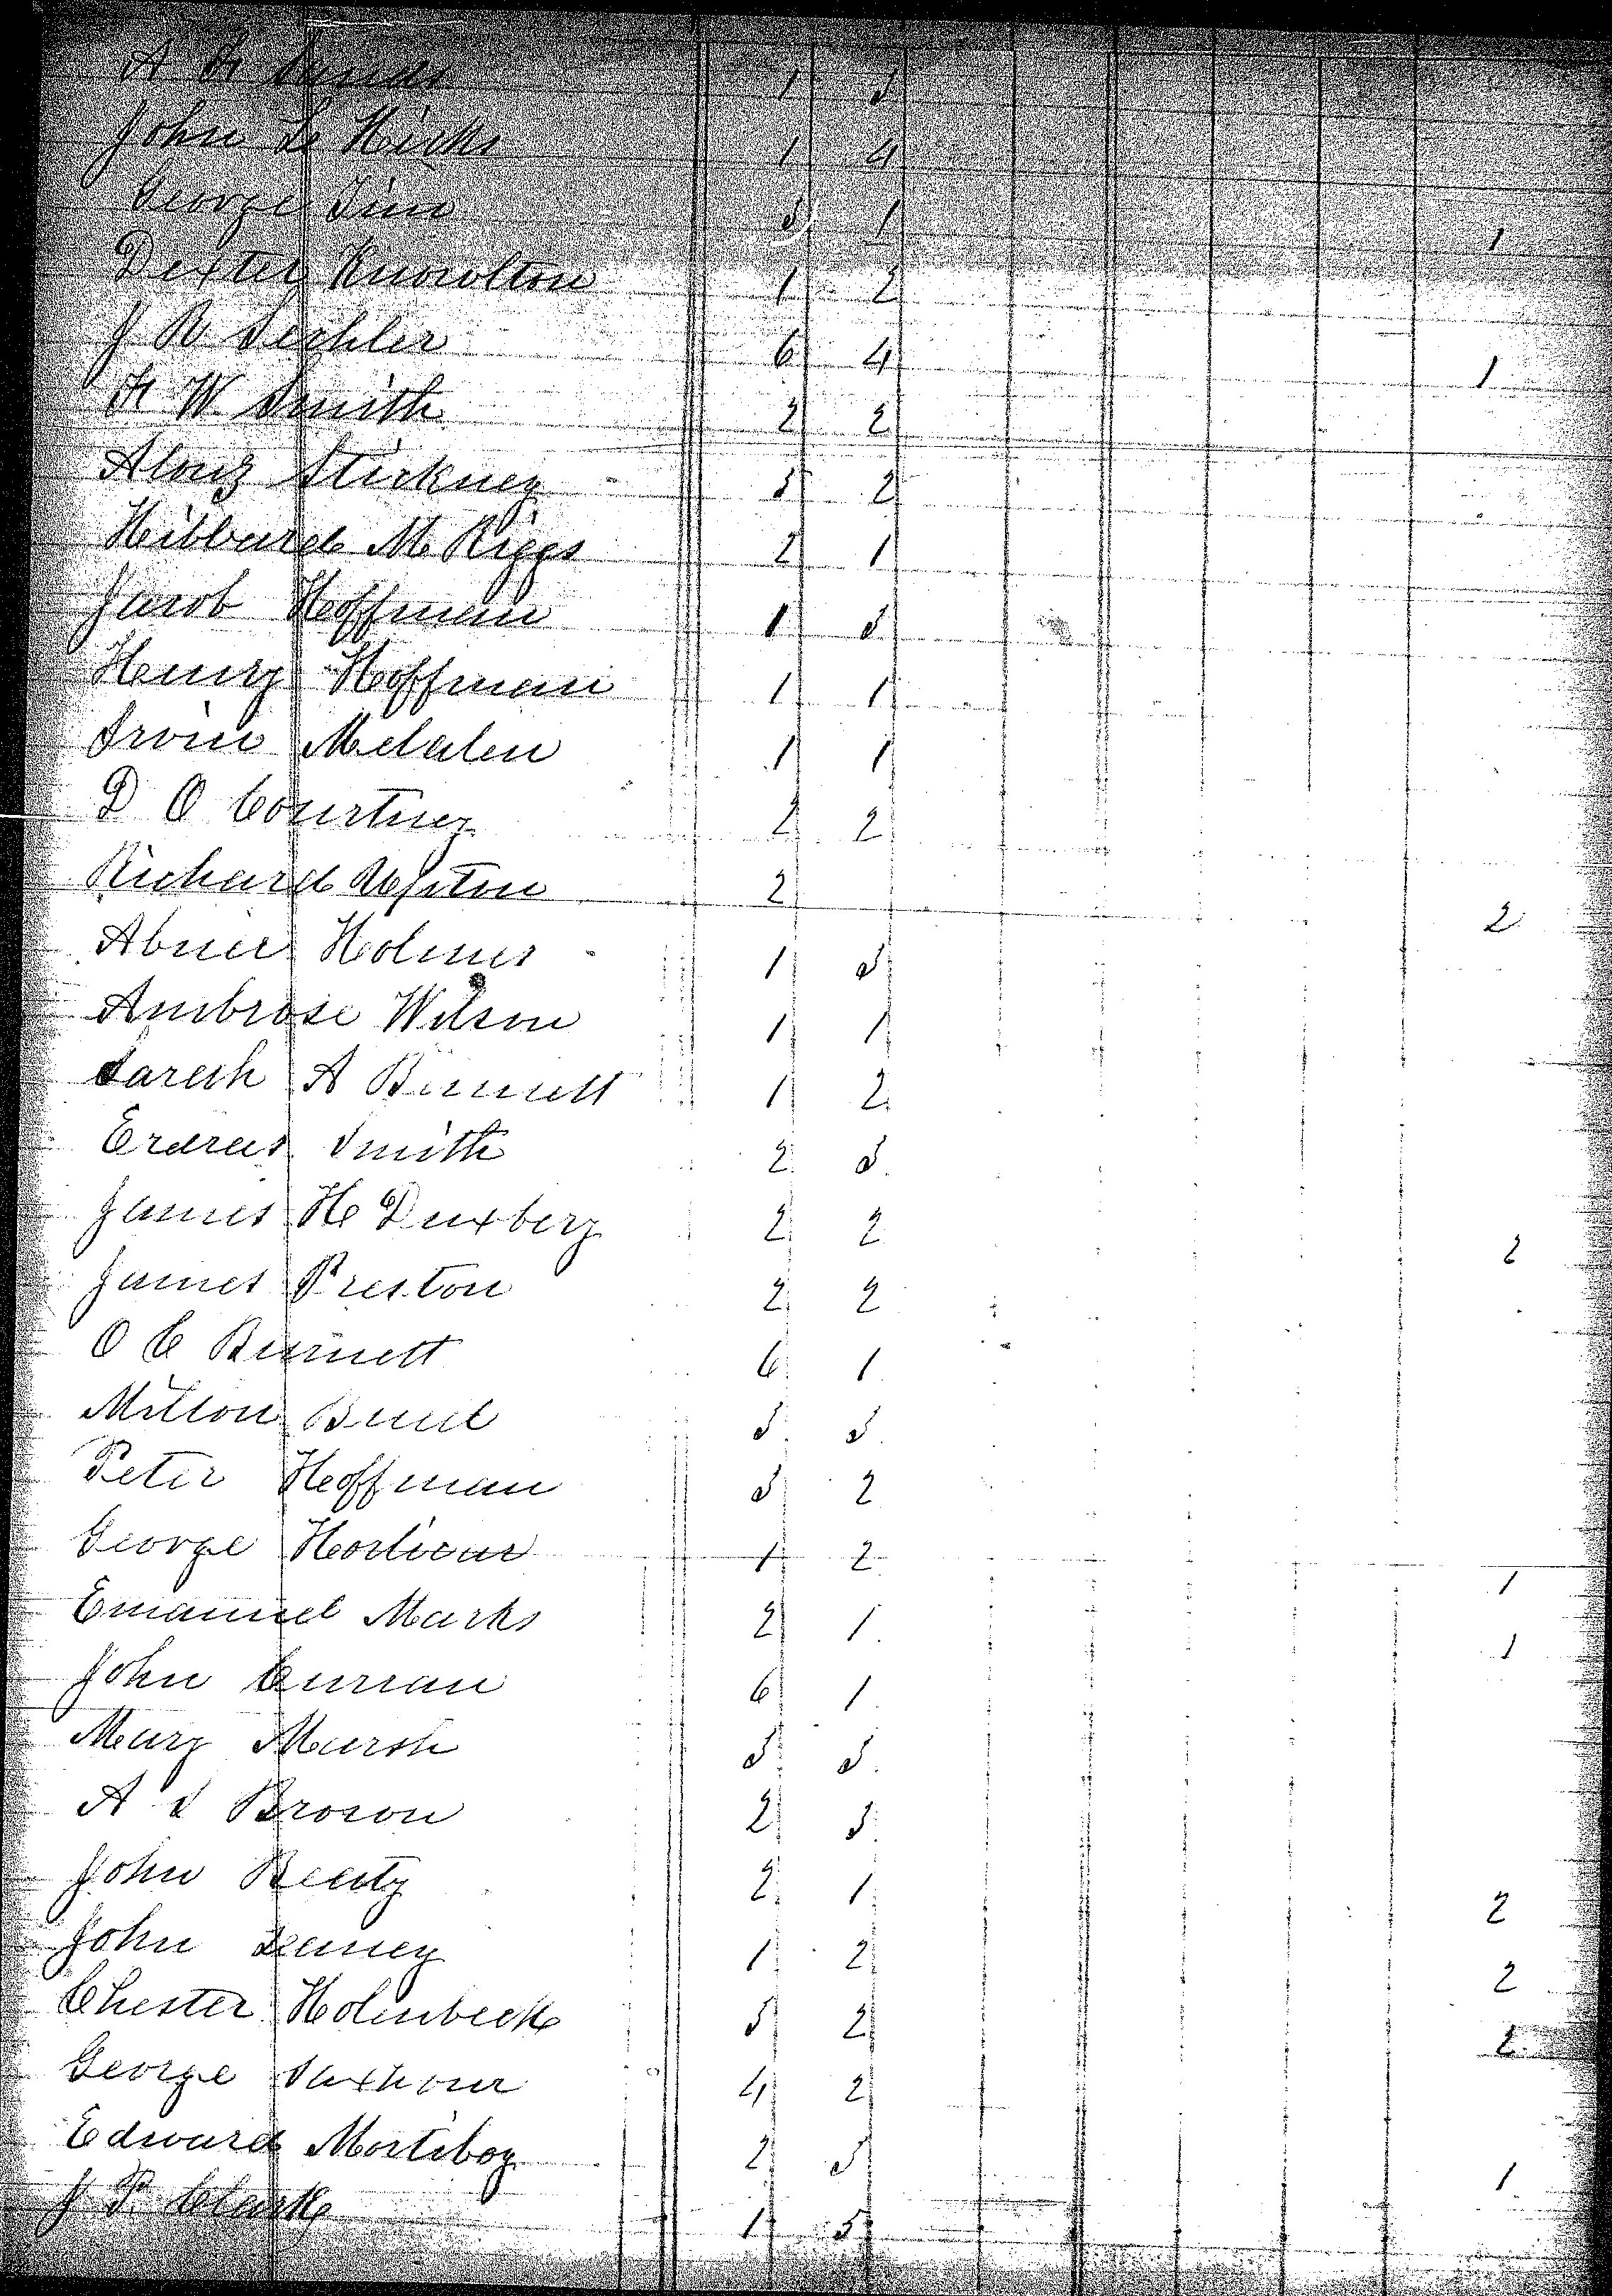 A H Sands 1 3
John L Hicks 1 4
George 3 1 1
Dexter Knowlton 1 2
J R Sechler 6 4 1
H W Smith 2 2
Alonz Stickney 5 2
Hibbard M Riggs 2 1
Jacob Hoffman 1 3
Henry Hoffman 1 1
Irvin 1 1
D O Courtney 2 2
Richard Upton 2 2
Abner Holmes 1 3
Ambrose Wilson 1 1
Sarah A Bennett 1 2
Smith 2 3
James H Duxbery 2 2 2
James Preston 2 2
O C Burnett 6 1
Milton 3 3
Peter Hoffman 3 2
George 1 2 1
Emanuel Marks 2 1 1
John Curran 6 1
Mary Marsh 3 3
A S Brown 2 3
John Bentz 2 1 2
John 1 2 2
Chester Holenbeck 5 2 2
George 4 2
Edward Mortiboy 2 3 1
J P Clark 1 5